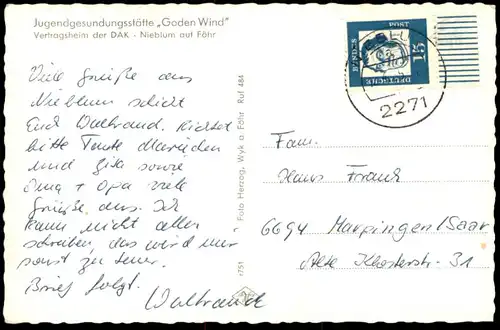 Jugendgesundungsstätte „Goden Wind"
Vertragsheim der DAK - Nieblum auf Föhr
Viele Grüße aus
Nieblum schickt
Euch Waltraud. Richtet
bitte Tante Mariechen
und Gisa sowie
Oma + Opa viele
Grüße aus. Ich
kann nicht allen
schreiben, das wird mir
sonst zu teuer.
Brief folgt.
Waltraud
Foto Herzog, Wyk a. Föhr Ruf 484
1751
DEUTSCHE
BUNDES
POST
15
2271
Fam.
Hans Frank
6694 Marpingen/Saar
Alte Klosterstr. 31